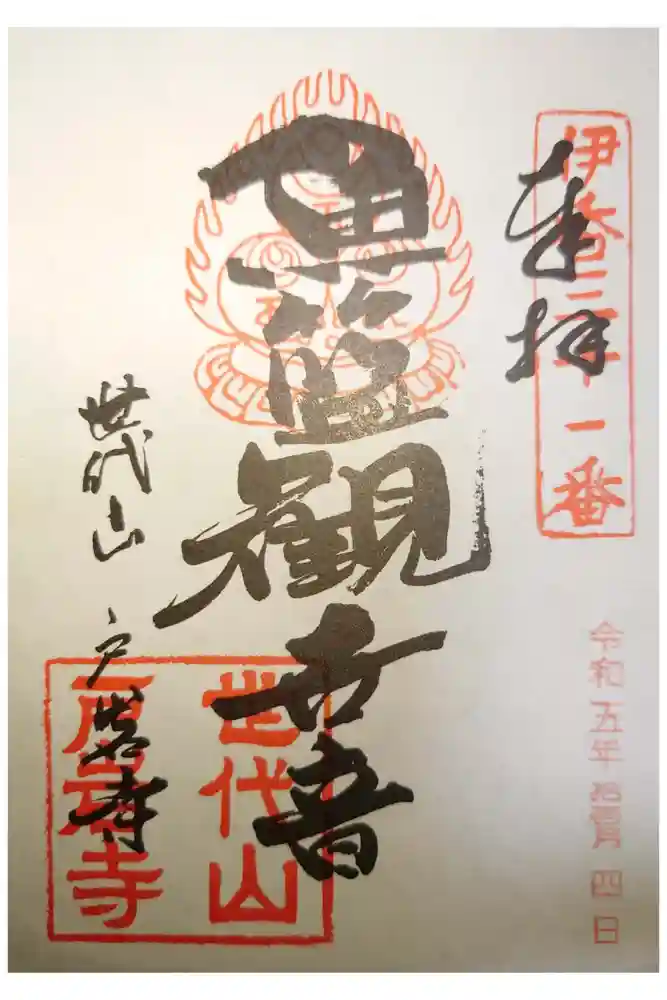 伊香三十一番
奉拝
令和五年拾壹月四日
魚籃観世音
世代山 戸岩寺
世代山
戸岩寺